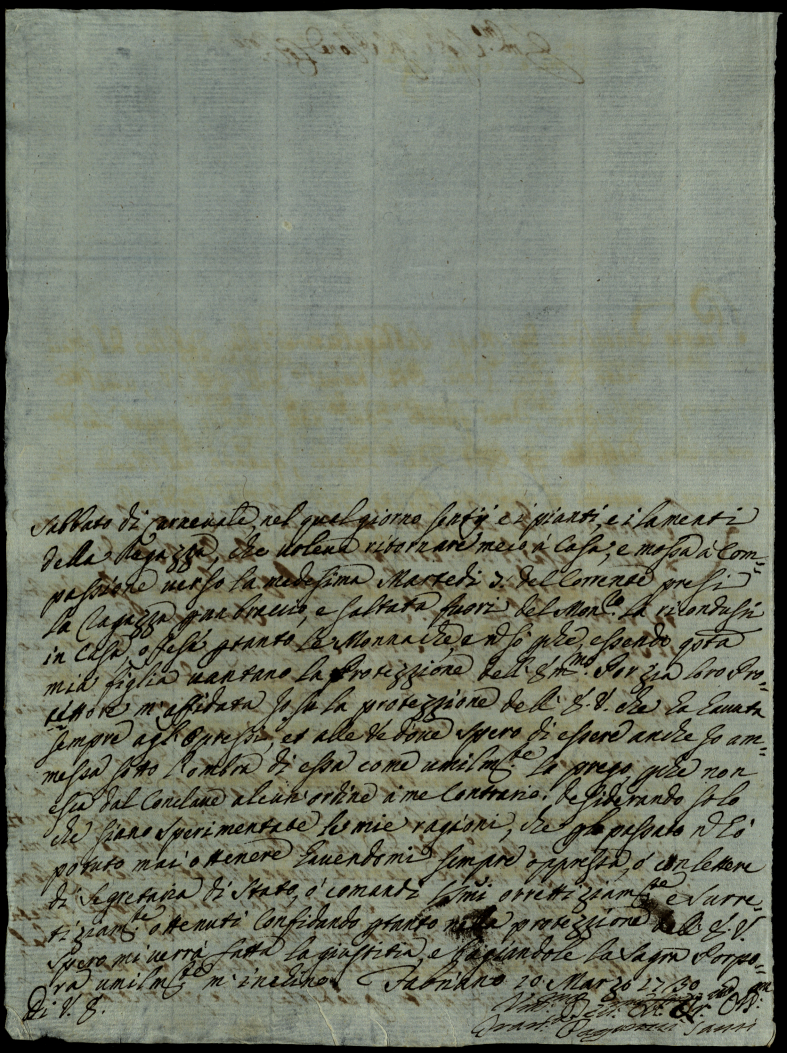 Sabbato di Carnevale, nel qual giorno sentij e i pianti, e i lamenti
della Ragazza, che voleva ritornare meco à Casa; e mossa à Com=
passione verso la medesima Martedi 7. del Corrente presi
la Ragazza p un braccio, e saltata fuori del Mon.ro la ricondussi
in Casa, offese ptanto le Monnache, e nõ sò pche, essendo qsta
mia figlia vantano la Protezzione dell' Em.mo Porzia loro Pro=
tettore m'affidata Jo su la protezzione dell' E. V. che hà havuta
sempre agl'Opressi, et alle Vedove spero di essere anche Jo am=
messa sotto l'ombra di essa come umilm.te la prego, pche non
esca dal Conclave alcun'ordine à me Contrario, desiderando solo
che siano sperimentate le mie ragioni, che p lo passato nõ hò
potuto mai ottenere havendomi sempre oppressa, ò con lettere
di Segretaria di Stato, ò comandi orrettiziam.te e surre=
tiziam.te ottenuti Confidando ptanto nella protezzione dell' E. V.
spero mi verrà fatta la giustitia, e baciandole la Sagra Porpo=
ra umilm.te m'inchino. Fabriano 10 Marzo 1730
Di V. E.